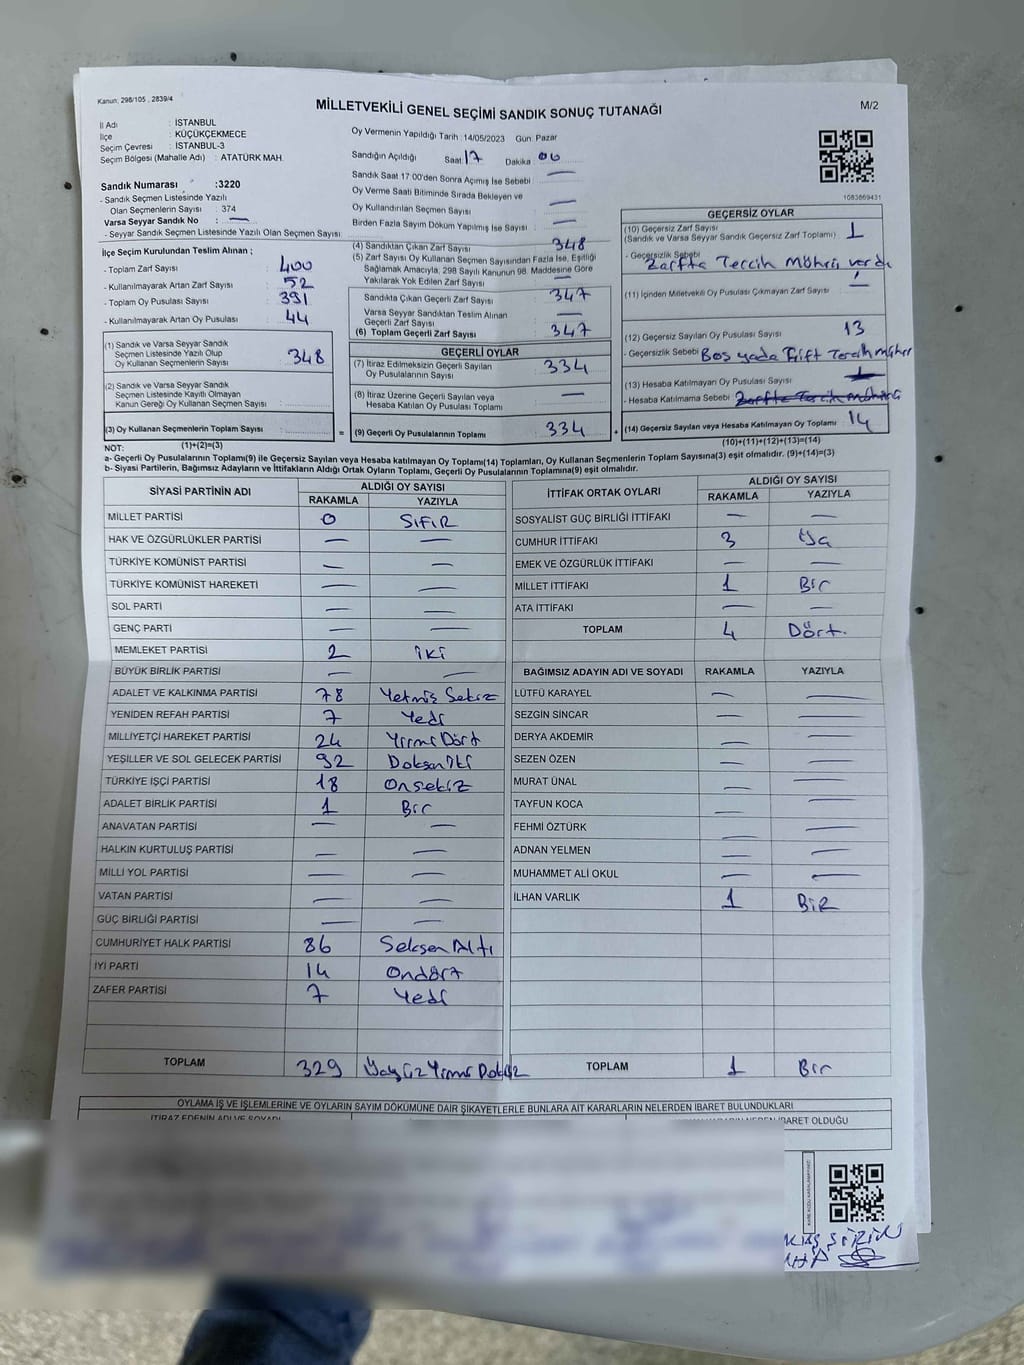 Kanun, 298/105 , 2839/4
MİLLETVEKİLİ GENEL SEÇİMİ SANDIK SONUÇ TUTANAĞI
M/2
İl Adı : İSTANBUL
İlçe : KÜÇÜKÇEKMECE
Seçim Çevresi : İSTANBUL-3
Seçim Bölgesi (Mahalle Adı) : ATATÜRK MAH.
Sandık Numarası :3220
- Sandık Seçmen Listesinde Yazılı
Olan Seçmenlerin Sayısı : 374
Varsa Seyyar Sandık No : —
- Seyyar Sandık Seçmen Listesinde Yazılı Olan Seçmen Sayısı
Oy Vermenin Yapıldığı Tarih : 14/05/2023 Gün: Pazar
Sandığın Açıldığı Saat 17 Dakika 00
Sandık Saat 17:00'den Sonra Açılmış İse Sebebi : —
Oy Verme Saati Bitiminde Sırada Bekleyen ve
Oy Kullandırılan Seçmen Sayısı : —
Birden Fazla Sayım Döküm Yapılmış İse Sayısı : —
1083869431
İlçe Seçim Kurulundan Teslim Alınan ;
- Toplam Zarf Sayısı : 400
- Kullanılmayarak Artan Zarf Sayısı : 52
- Toplam Oy Pusulası Sayısı : 391
- Kullanılmayarak Artan Oy Pusulası : 44
(1) Sandık ve Varsa Seyyar Sandık
Seçmen Listesinde Yazılı Olup
Oy Kullanan Seçmenlerin Sayısı : 348
(2) Sandık ve Varsa Seyyar Sandık
Seçmen Listesinde Kayıtlı Olmayan
Kanun Gereği Oy Kullanan Seçmen Sayısı :
(3) Oy Kullanan Seçmenlerin Toplam Sayısı :
(1)+(2)=(3)
(4) Sandıktan Çıkan Zarf Sayısı : 348
(5) Zarf Sayısı Oy Kullanan Seçmen Sayısından Fazla İse, Eşitliği
Sağlamak Amacıyla, 298 Sayılı Kanunun 98. Maddesine Göre
Yakılarak Yok Edilen Zarf Sayısı : —
Sandıkta Çıkan Geçerli Zarf Sayısı : 347
Varsa Seyyar Sandıktan Teslim Alınan
Geçerli Zarf Sayısı : —
(6) Toplam Geçerli Zarf Sayısı : 347
GEÇERLİ OYLAR
(7) İtiraz Edilmeksizin Geçerli Sayılan
Oy Pusulalarının Sayısı : 334
(8) İtiraz Üzerine Geçerli Sayılan veya
Hesaba Katılan Oy Pusulası Toplamı : —
= (9) Geçerli Oy Pusulalarının Toplamı : 334 +
GEÇERSİZ OYLAR
(10) Geçersiz Zarf Sayısı : 1
(Sandık ve Varsa Seyyar Sandık Geçersiz Zarf Toplamı)
- Geçersizlik Sebebi
Zarfta Tercih Mührü vardı
(11) İçinden Milletvekili Oy Pusulası Çıkmayan Zarf Sayısı : —
(12) Geçersiz Sayılan Oy Pusulası Sayısı : 13
- Geçersizlik Sebebi Boş yada Çift Tercih mühür
(13) Hesaba Katılmayan Oy Pusulası Sayısı
- Hesaba Katılmama Sebebi
(14) Geçersiz Sayılan veya Hesaba Katılmayan Oy Toplamı : 14
(10)+(11)+(12)+(13)=(14)
NOT:
a- Geçerli Oy Pusulalarının Toplamı(9) ile Geçersiz Sayılan veya Hesaba katılmayan Oy Toplamı(14) Toplamları, Oy Kullanan Seçmenlerin Toplam Sayısına(3) eşit olmalıdır. (9)+(14)=(3)
b- Siyasi Partilerin, Bağımsız Adayların ve İttifakların Aldığı Ortak Oyların Toplamı, Geçerli Oy Pusulalarının Toplamına(9) eşit olmalıdır.
SİYASİ PARTİNİN ADI ALDIĞI OY SAYISI
RAKAMLA YAZIYLA
MİLLET PARTİSİ 0 SIFIR
HAK VE ÖZGÜRLÜKLER PARTİSİ — —
TÜRKİYE KOMÜNİST PARTİSİ — —
TÜRKİYE KOMÜNİST HAREKETİ — —
SOL PARTİ — —
GENÇ PARTİ — —
MEMLEKET PARTİSİ 2 iki
BÜYÜK BİRLİK PARTİSİ — —
ADALET VE KALKINMA PARTİSİ 78 Yetmiş Sekiz
YENİDEN REFAH PARTİSİ 7 Yedi
MİLLİYETÇİ HAREKET PARTİSİ 24 Yirmi Dört
YEŞİLLER VE SOL GELECEK PARTİSİ 92 Doksan iki
TÜRKİYE İŞÇİ PARTİSİ 18 Onsekiz
ADALET BİRLİK PARTİSİ 1 Bir
ANAVATAN PARTİSİ — —
HALKIN KURTULUŞ PARTİSİ — —
MİLLİ YOL PARTİSİ — —
VATAN PARTİSİ — —
GÜÇ BİRLİĞİ PARTİSİ — —
CUMHURİYET HALK PARTİSİ 86 Seksen Altı
İYİ PARTİ 14 Ondört
ZAFER PARTİSİ 7 Yedi
TOPLAM 329 Üçyüz Yirmi Dokuz
İTTİFAK ORTAK OYLARI ALDIĞI OY SAYISI
RAKAMLA YAZIYLA
SOSYALİST GÜÇ BİRLİĞİ İTTİFAKI — —
CUMHUR İTTİFAKI 3 Üç
EMEK VE ÖZGÜRLÜK İTTİFAKI — —
MİLLET İTTİFAKI 1 Bir
ATA İTTİFAKI — —
TOPLAM 4 Dört.
BAĞIMSIZ ADAYIN ADI VE SOYADI RAKAMLA YAZIYLA
LÜTFÜ KARAYEL — —
SEZGİN SİNCAR — —
DERYA AKDEMİR — —
SEZEN ÖZEN — —
MURAT ÜNAL — —
TAYFUN KOCA — —
FEHMİ ÖZTÜRK — —
ADNAN YELMEN — —
MUHAMMET ALİ OKUL — —
İLHAN VARLIK 1 BİR
TOPLAM 1 Bir
OYLAMA İŞ VE İŞLEMLERİNE VE OYLARIN SAYIM DÖKÜMÜNE DAİR ŞİKAYETLERLE BUNLARA AİT KARARLARIN NELERDEN İBARET BULUNDUKLARI
İTİRAZ EDENİN ADI VE SOYADI
İBARET OLDUĞU